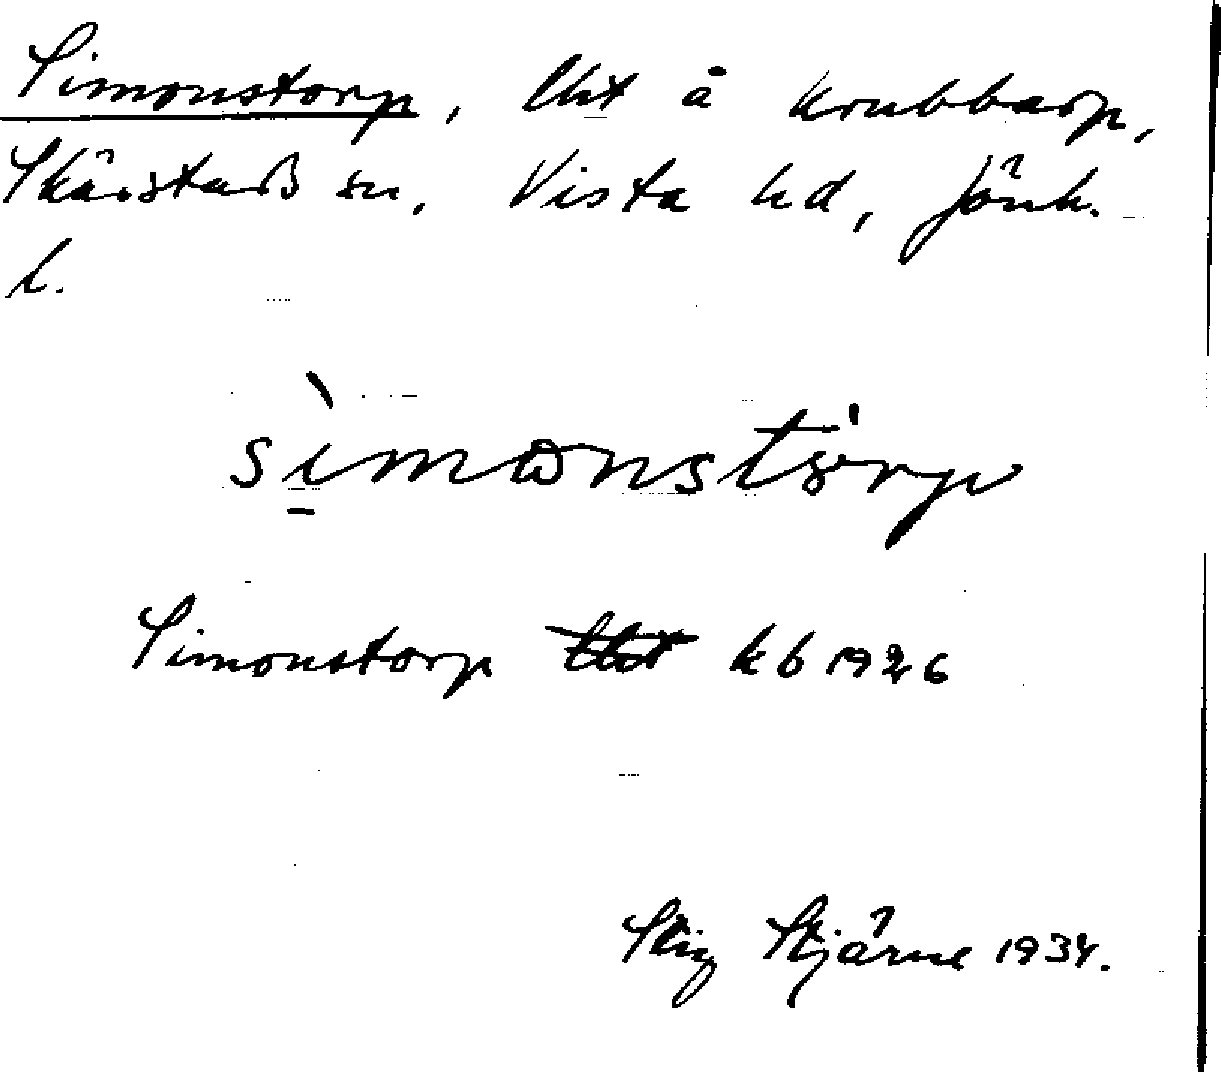 Simonstorp, lht å Krubbarp,
Skärstads sn, Vista hd, Jönk.
l.
sìmɷnstȯrp
Simonstorp lht kb 1926
Stig Stjärne 1934.